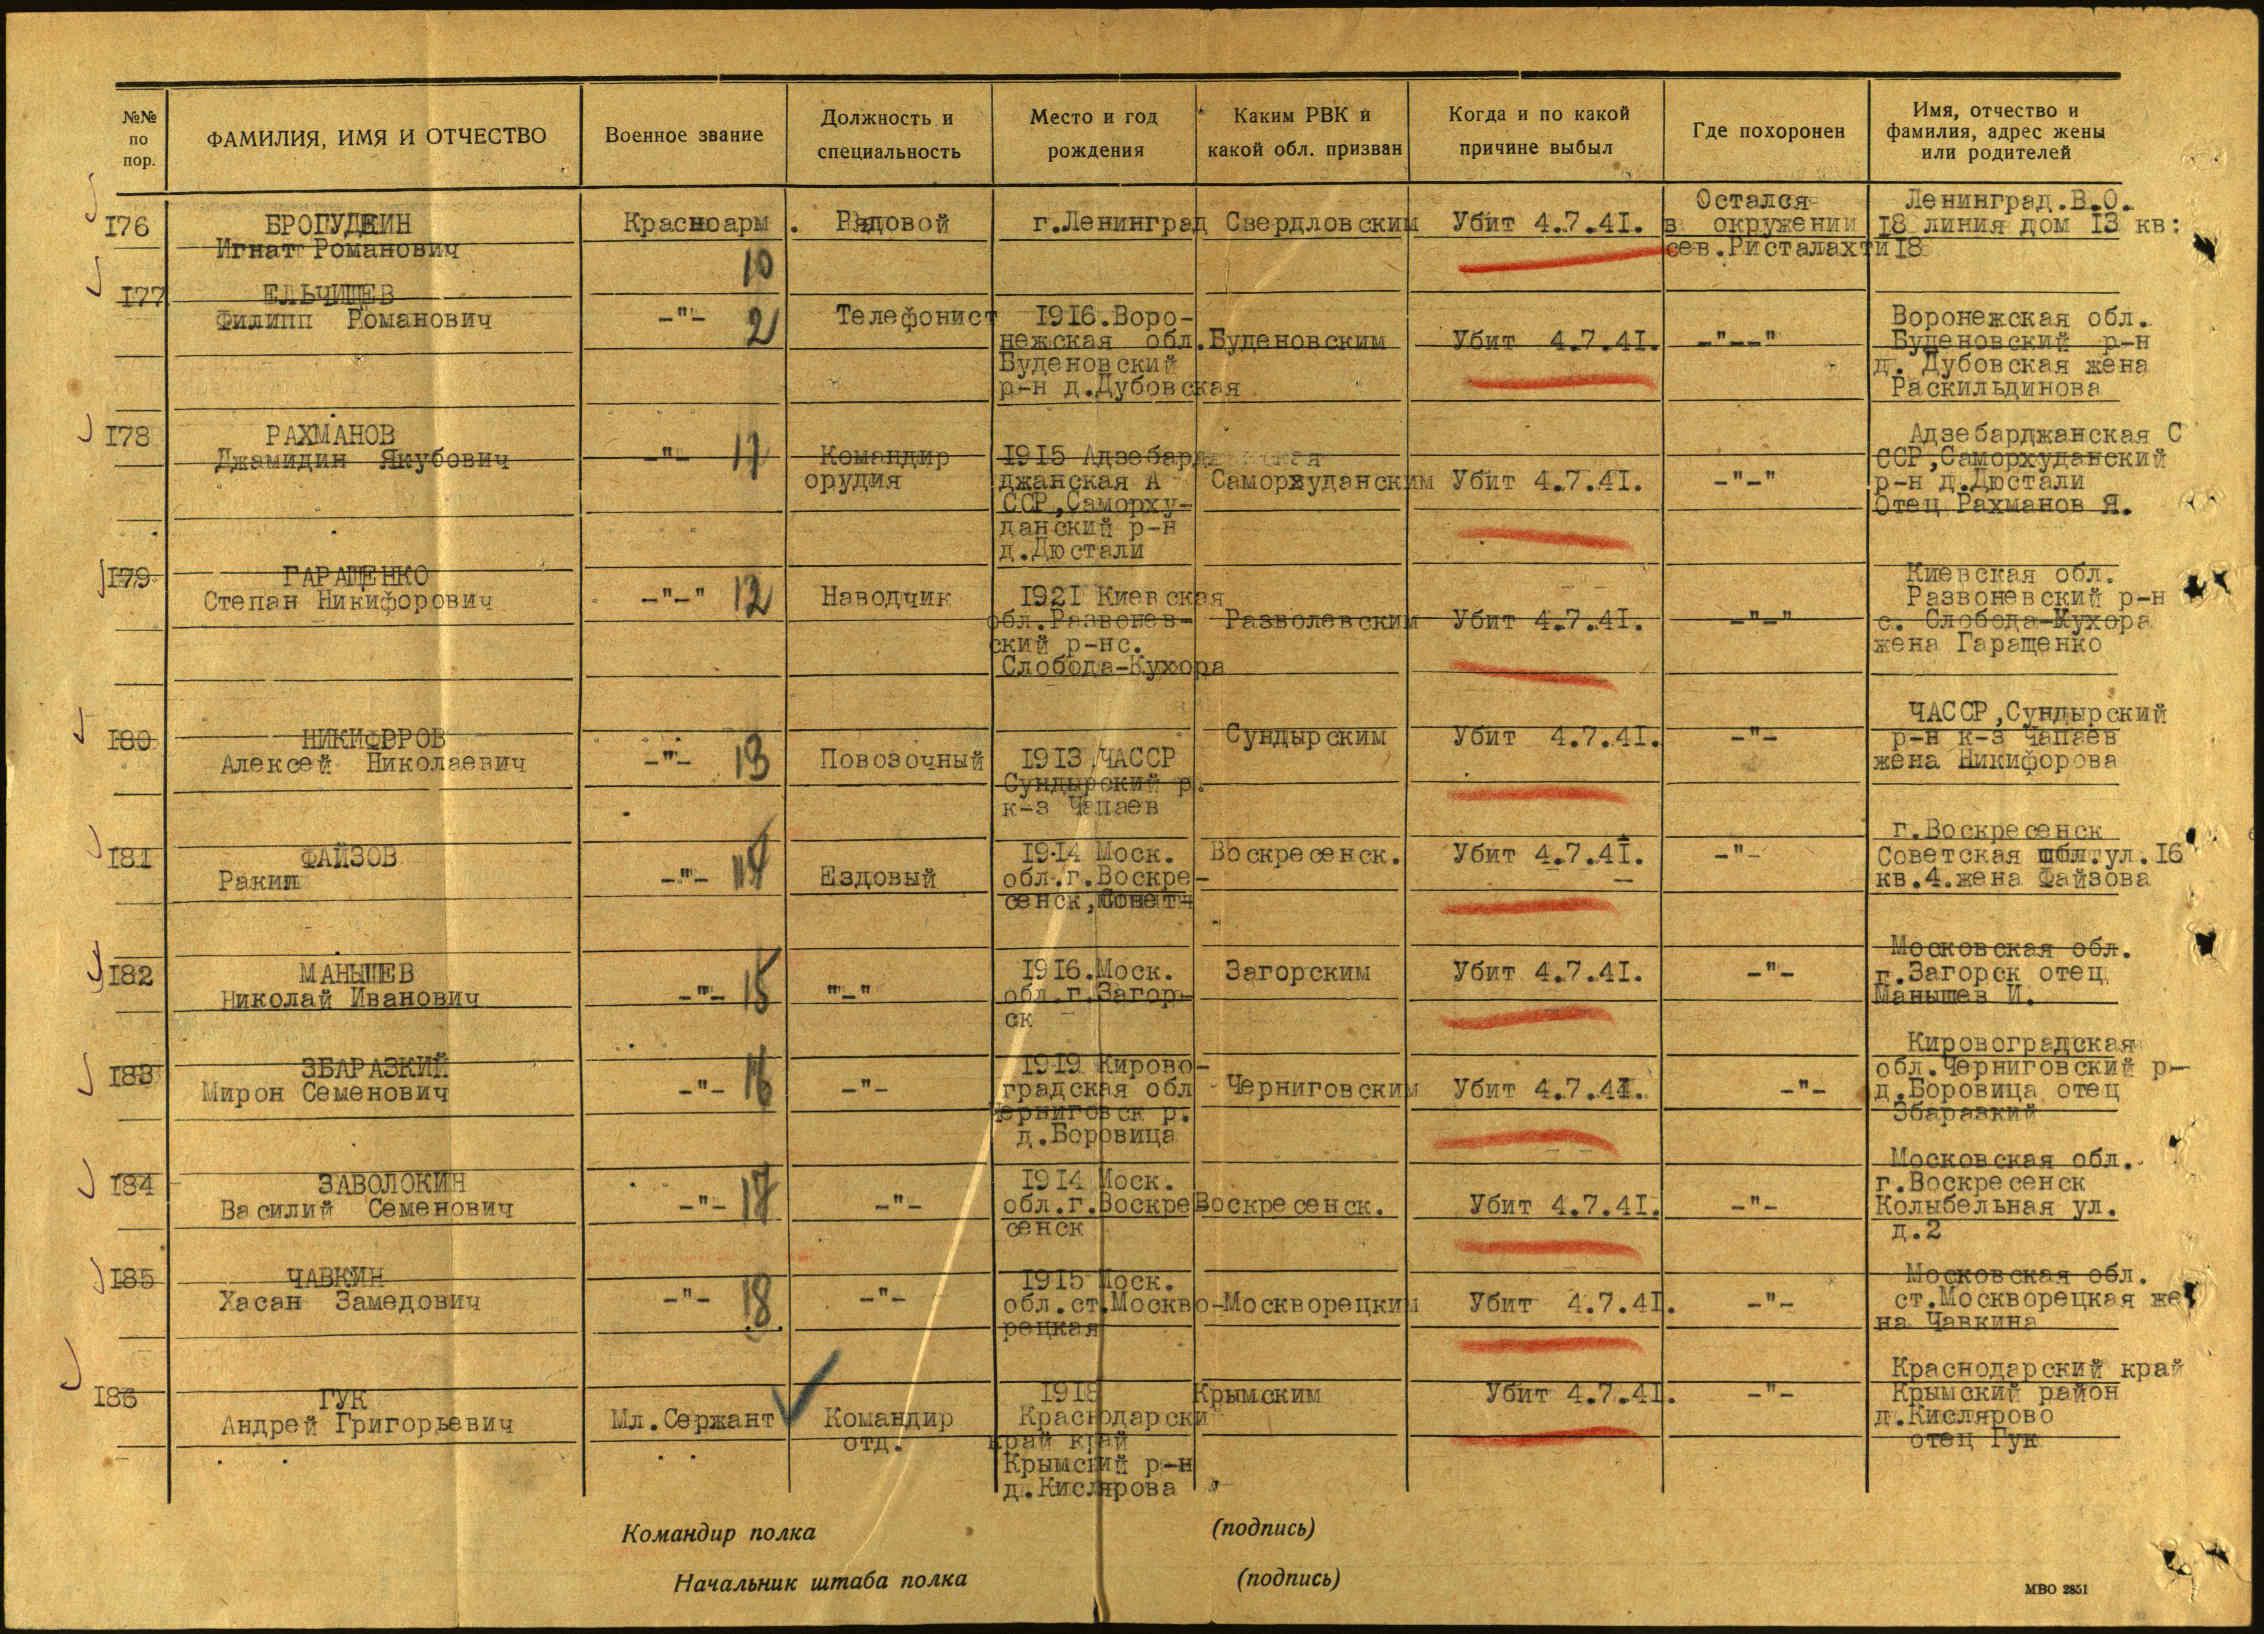 №№ по пор.
ФАМИЛИЯ, ИМЯ И ОТЧЕСТВО
Военное звание
Должность и специальность
Место и год рождения
Каким РВК и какой обл. призван
Когда и по какой причине выбыл
Где похоронен
Имя, отчество и фамилия, адрес жены или родителей
176
БРОГУДКИН
Игнат Романович
Красноарм.
10
Рядовой
г.Ленинград
Свердловским
Убит 4.7.41.
Остался
в окружении
сев.Ристалахти
Ленинград.В.О.
18 линия дом 13 кв:
18
177
ЕЛЬЧИЩЕВ
Филипп Романович
-"-
2
Телефонист
1916.Воро-
нежская обл.
Буденовский
р-н д.Дубовская
Буденовским
Убит 4.7.41.
-"--"
Воронежская обл.
Буденовский р-н
д. Дубовская жена
Раскильдинова
178
РАХМАНОВ
Джамидин Якубович
-"-
11
Командир
орудия
1915 Адзебард
джанская А
ССР,Саморху-
данский р-н
д.Дюстали
Саморхуданским
Убит 4.7.41.
-"-"
Адзебарджанская С
ССР,Саморхуданский
р-н д.Дюстали
Отец Рахманов Я.
179
ГАРАЩЕНКО
Степан Никифорович
-"-"
12
Наводчик
1921 Киевская
обл.Развонев-
ский р-нс.
Слобода-Кухора
Разволевским
Убит 4.7.41.
-"-"
Киевская обл.
Развоневский р-н
с. Слобода-Кухора
жена Гаращенко
180
НИКИФРРОВ
Алексей Николаевич
-"-
13
Повозочный
1913,ЧАССР
Сундырский р.
к-з Чапаев
Сундырским
Убит 4.7.41.
-"-
ЧАССР,Сундырский
р-н к-з Чапаев
жена Никифорова
181
ФАЙЗОВ
Ракип
-"-
14
Ездовый
1914 Моск.
обл.г.Воскре-
сенск,
Воскресенск.
Убит 4.7.41.
-"-
г.Воскресенск
Советская ул.16
кв.4.жена Файзова
182
МАНЫШЕВ
Николай Иванович
-"-
15
"-"
1916.Моск.
обл.г.Загор-
ск
Загорским
Убит 4.7.41.
-"-
Московская обл.
г.Загорск отец
Манышев И.
183
ЗБАРАЗКИЙ
Мирон Семенович
-"-
16
-"-
1919 Кирово-
градская обл
Черниговск р.
д.Боровица
Черниговским
Убит 4.7.41.
-"-
Кировоградская
обл.Черниговский р-
д.Боровица отец
Збаразкий
184
ЗАВОЛОКИН
Василий Семенович
-"-
17
-"-
1914 Моск.
обл.г.Воскре
сенск
Воскресенск.
Убит 4.7.41.
-"-
Московская обл.
г.Воскресенск
Колыбельная ул.
д.2
185
ЧАВКИН
Хасан Замедович
-"-
18
-"-
1915 Моск.
обл.ст.Москво-
рецкая
Москворецким
Убит 4.7.41.
-"-
Московская обл.
ст.Москворецкая же
на Чавкина
186
ГУК
Андрей Григорьевич
Мл.Сержант
Командир
отд.
1918
Краснодарски
край край
Крымский р-н
д.Кислярова
Крымским
Убит 4.7.41.
-"-
Краснодарский край
Крымский район
д.Кислярово
отец Гук
Командир полка
(подпись)
Начальник штаба полка
(подпись)
МВО 2851